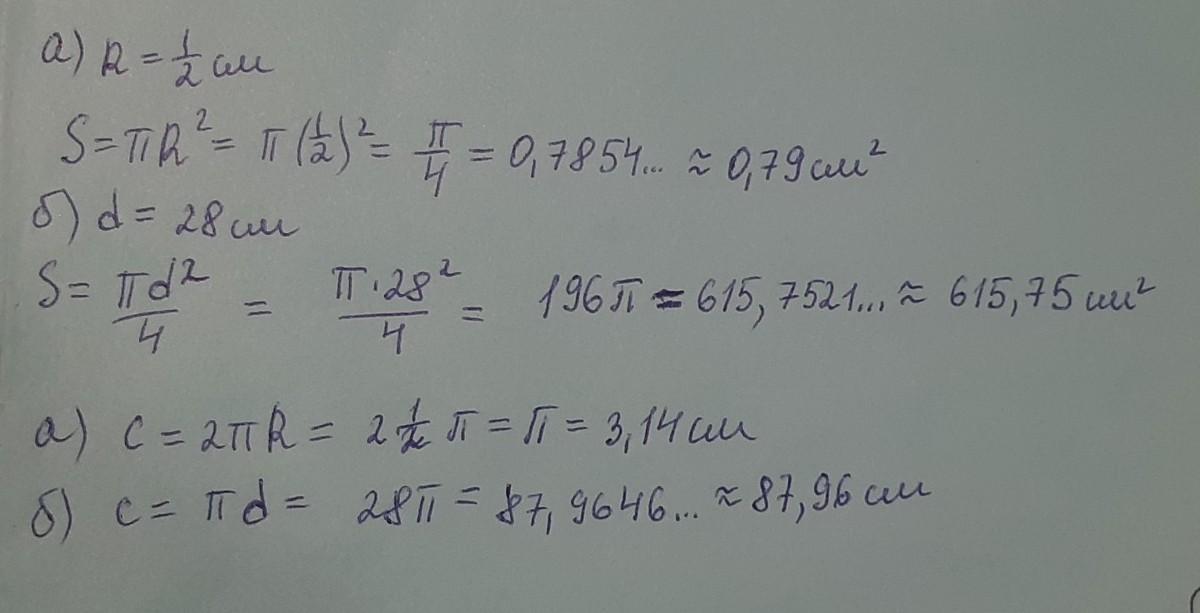 а) R = 1/2 см
S = πR² = π(1/2)² = π/4 = 0,7854... ≈ 0,79 см²
б) d = 28 см
S = πd²/4 = π·28²/4 = 196π = 615,7521... ≈ 615,75 см²
а) c = 2πR = 2 1/2 π = π = 3,14 см
б) c = πd = 28π = 87,9646... ≈ 87,96 см